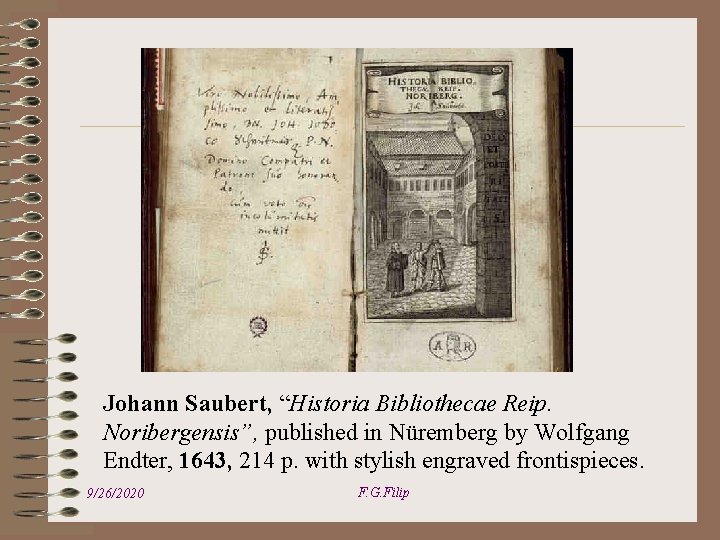 Vero Nobilissimo, Am
plissimo et literatis
simo, Dn. Joh. Jodo
co Schvitmaÿ P. N.
Domino Compatri et
Patrono suo honoran
do,
cum voto
incolumitatis
mittit
HISTORIA BIBLIO.
THECÆ REIP.
NORIBERG.
DEO
ET
A R
Johann Saubert, “Historia Bibliothecae Reip.
Noribergensis”, published in Nüremberg by Wolfgang
Endter, 1643, 214 p. with stylish engraved frontispieces.
9/26/2020
F.G.Filip